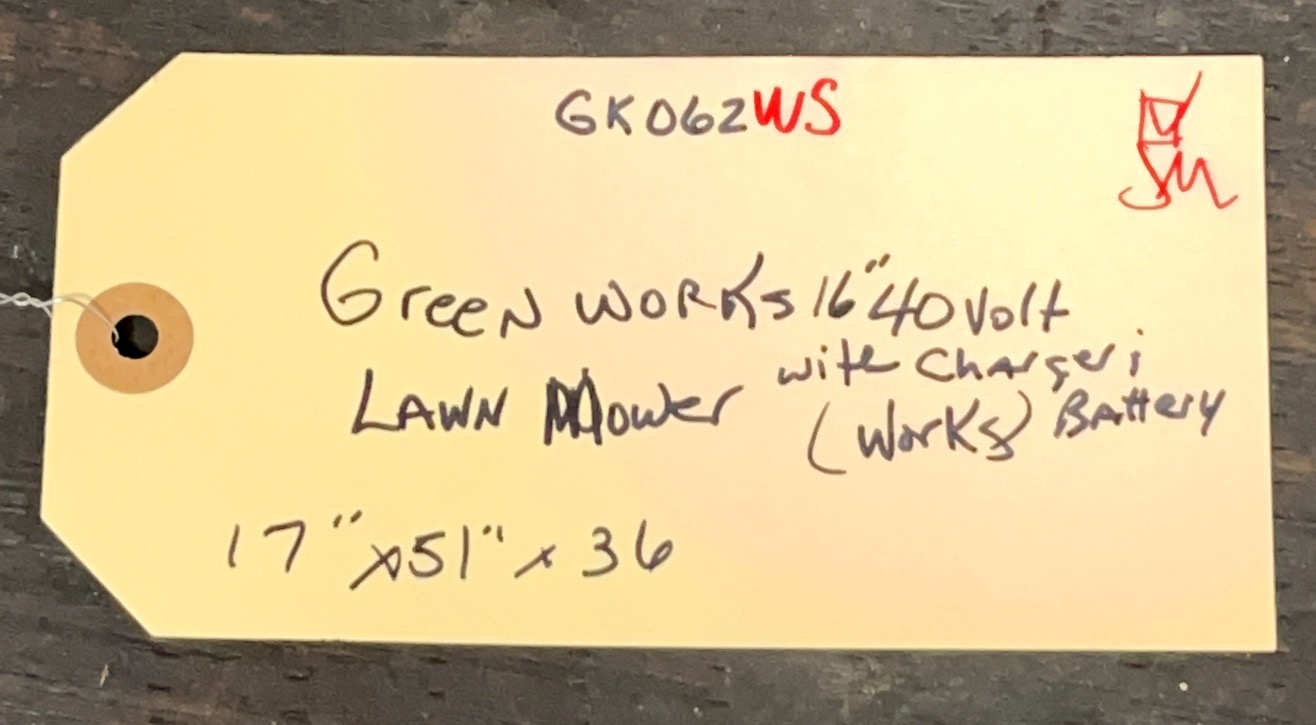 GK062WS
Green Works 16" 40 Volt
Lawn Mower with Charger;
(Works) Battery
17" x 51" x 36